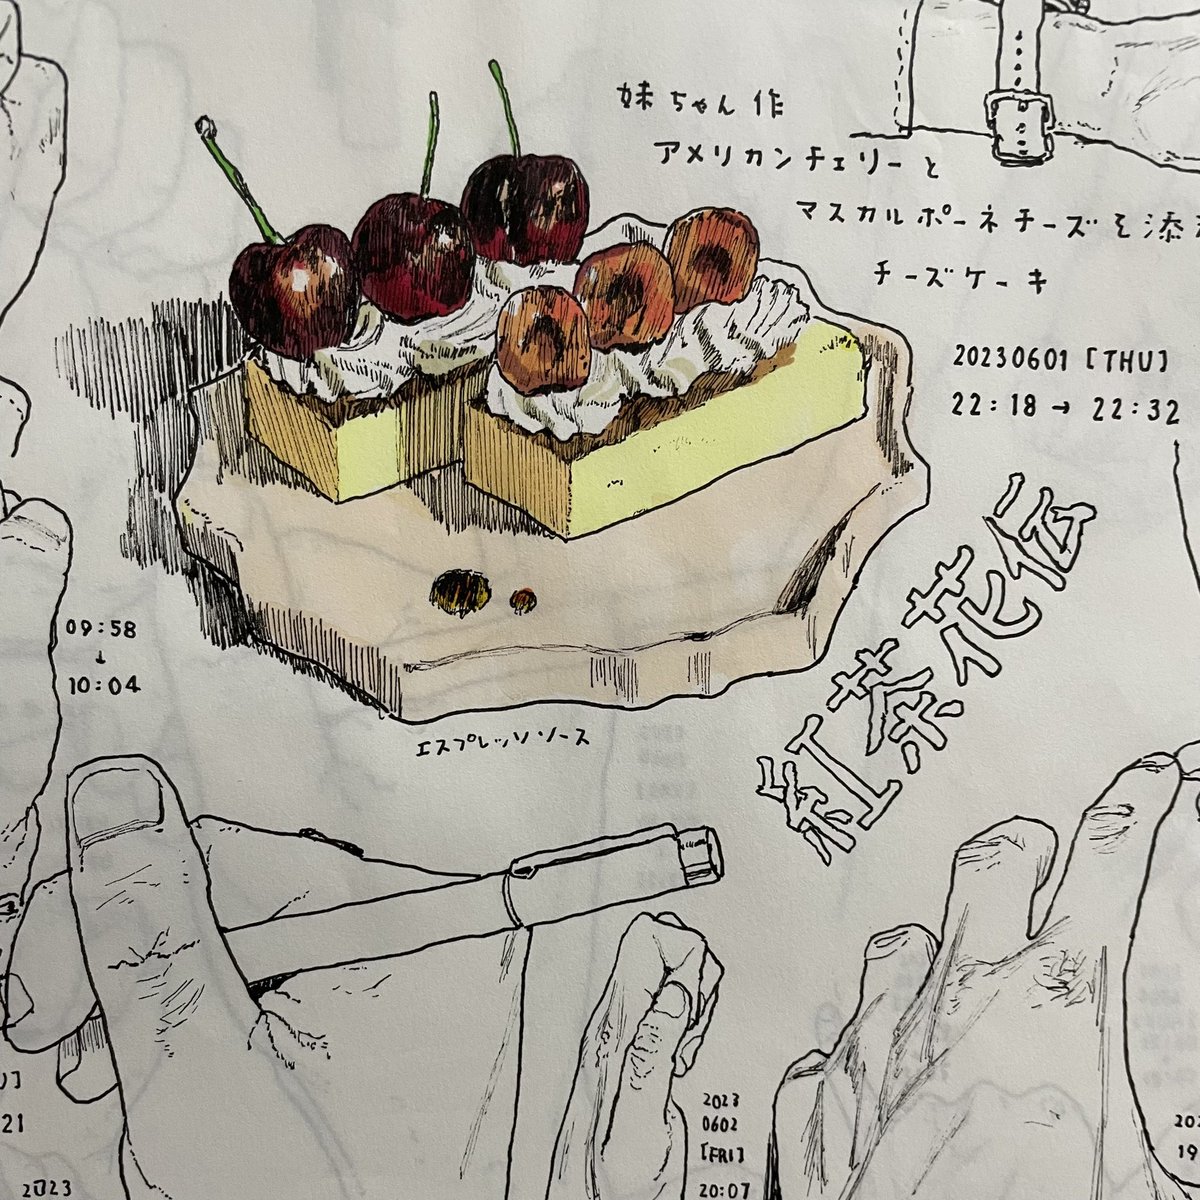 妹ちゃん作
アメリカンチェリーと
マスカルポーネチーズを添
チーズケーキ
20230601 [THU]
22:18→22:32
紅茶花伝
09:58
↓
10:04
エスプレッソソース
2023
0602
[FRI]
20:07
21
2023
19